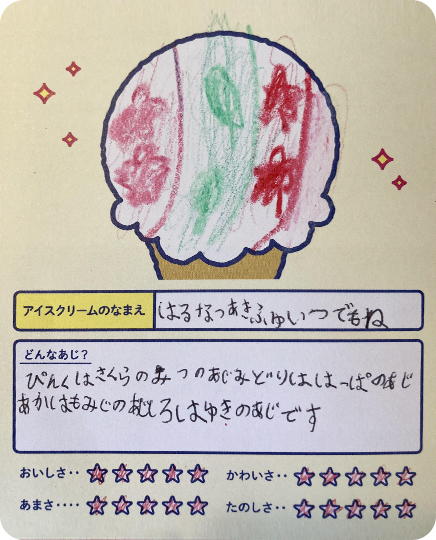 アイスクリームのなまえ はるなつあきふゆいつでもね
どんなあじ？
ぴんくはさくらのみつのあじみどりははっぱのあじ
あかはもみじのあじしろはゆきのあじです
おいしさ‥ ☆☆☆☆☆ かわいさ‥ ☆☆☆☆☆
あまさ‥‥ ☆☆☆☆☆ たのしさ‥ ☆☆☆☆☆